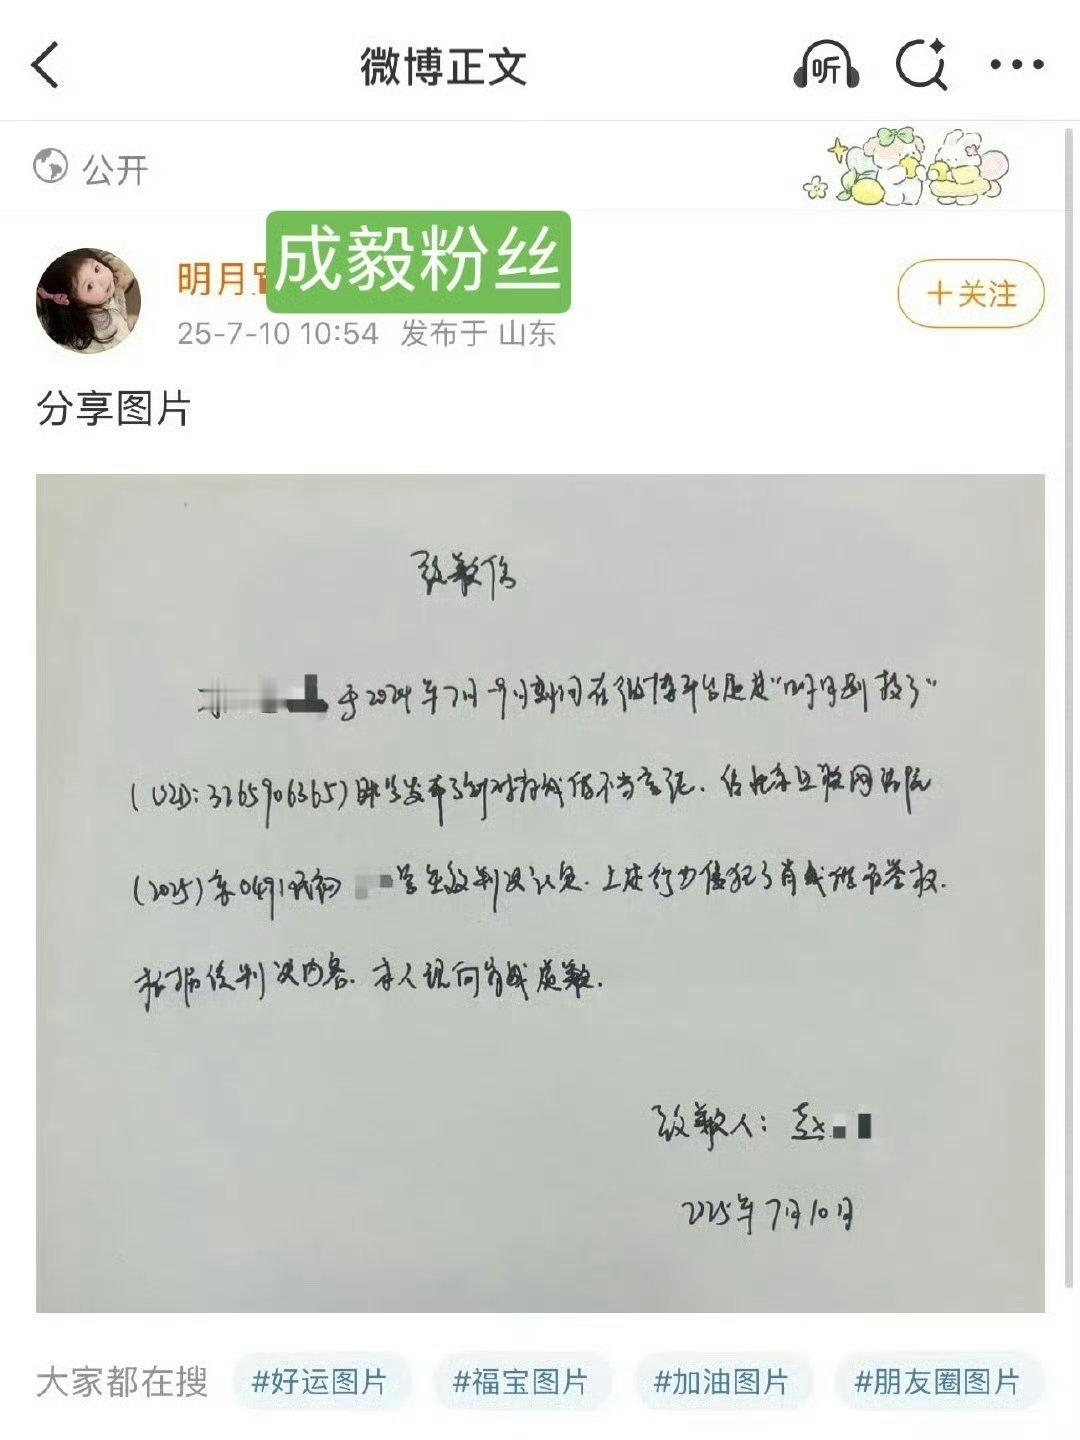 微博正文
听
公开
明月
成毅粉丝
25-7-10 10:54 发布于 山东
+关注
分享图片
致歉信
于2024年7月-9月期间在微博平台通过"明月别放了"
(UID: 3265906365) 账号发布了针对肖战的不当言论.经北京互联网法院
(2025)京0491民初 号生效判决认定.上述行为侵犯了肖战的名誉权.
根据该判决内容.本人现向肖战道歉.
致歉人: 赵
2025年7月10日
大家都在搜 #好运图片 #福宝图片 #加油图片 #朋友圈图片